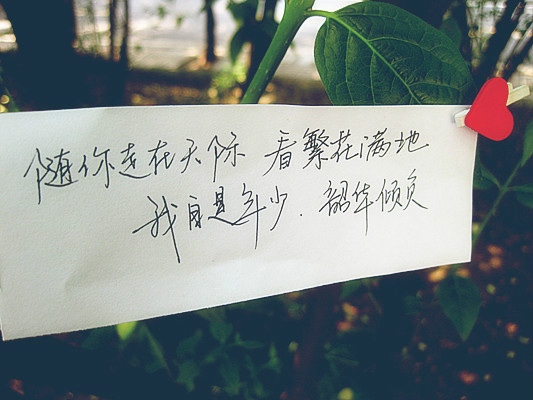 随你走在天际 看繁花满地
我自是年少.韶华倾负